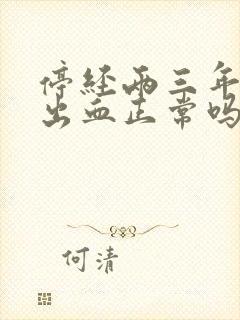 停经两三年
出血正常吗
何清